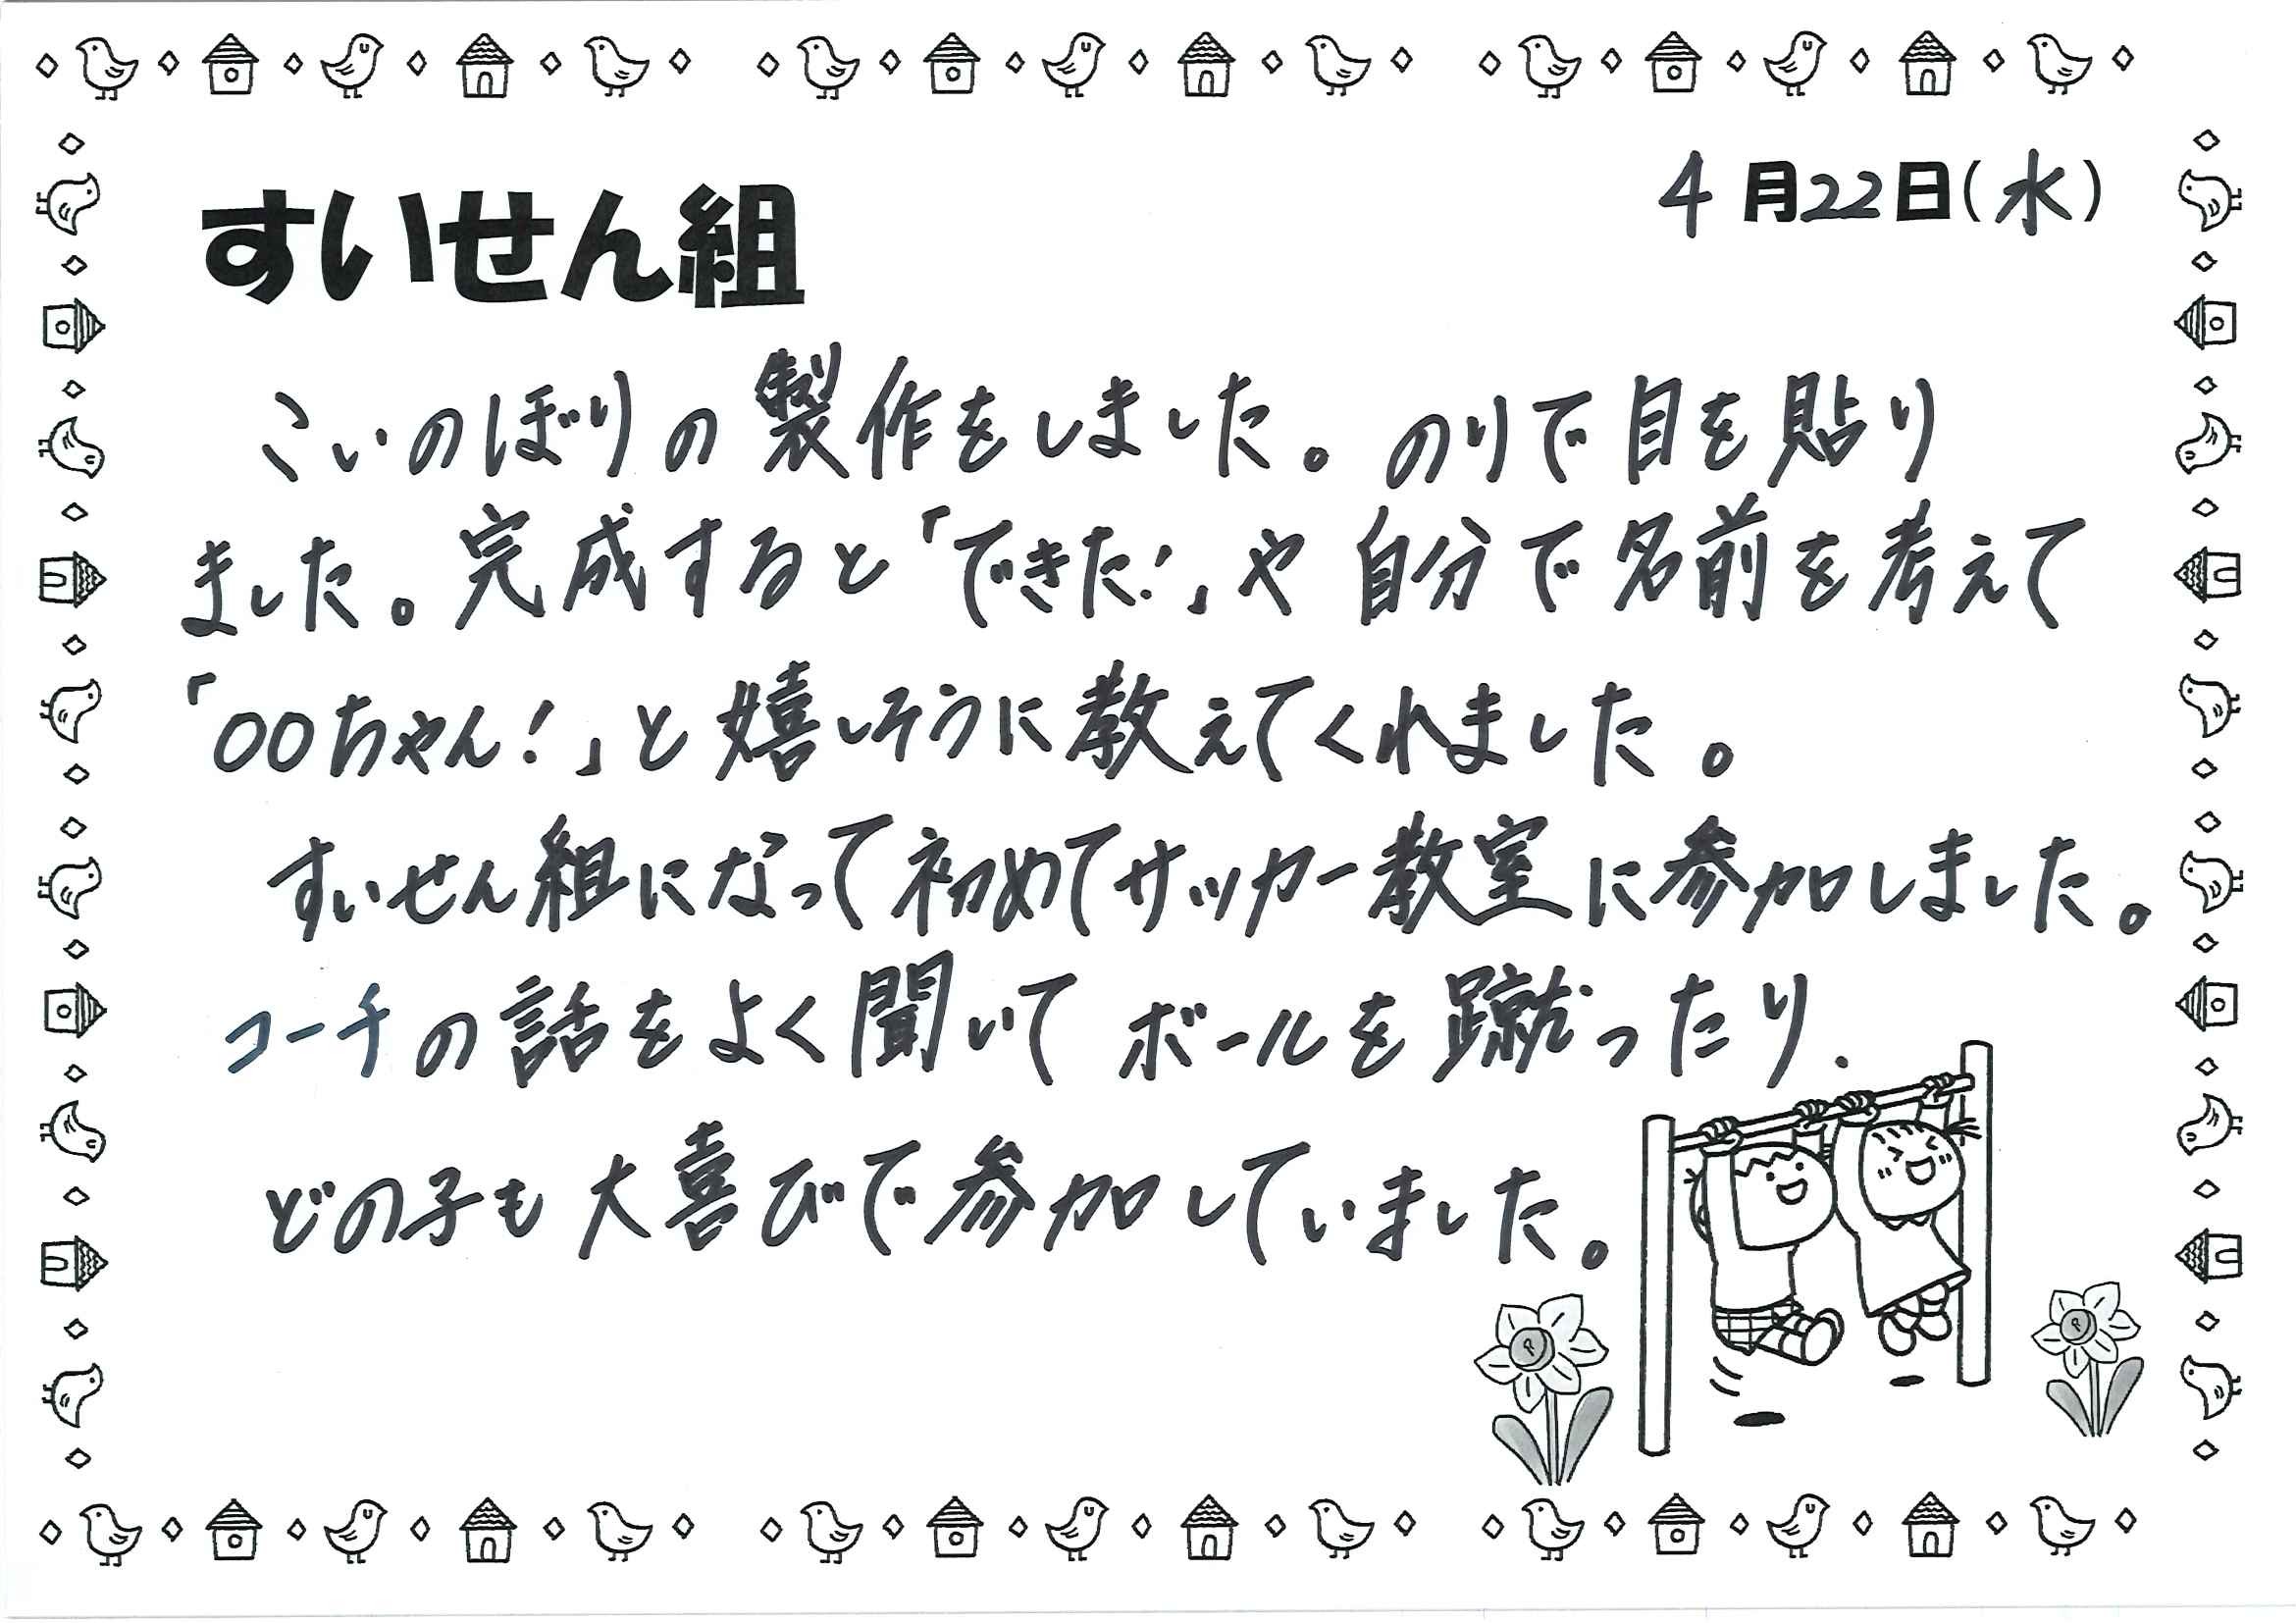 4月22日(水)
すいせん組
こいのぼりの製作をしました。のりで目を貼り
ました。完成すると「できた!」や自分で名前を考えて
「○○ちゃん!」と嬉しそうに教えてくれました。
すいせん組になって初めてサッカー教室に参加しました。
コーチの話をよく聞いてボールを蹴ったり、
どの子も大喜びで参加していました。